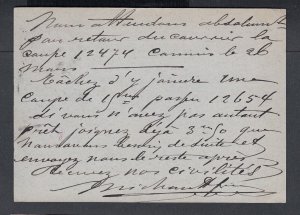 Nous attendons absolument
par retour du courrier la
coupe 12474 Commis le 26
Mars
Tâchez d'y joindre une
coupe de 1 12654
si vous n'avez pas autant
prêt joignez déjà 3 que
de suite et
envoyez nous le reste après
nos civilités